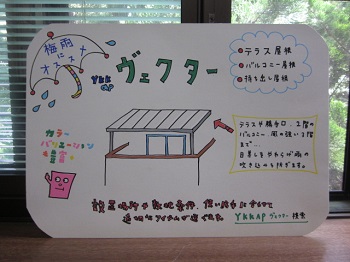 梅雨に
オススメ
YKK
AP
ヴェクター
テラス屋根
バルコニー屋根
持ち出し屋根
カラー
バリエーション
豊富
テラスや勝手口、2階の
バルコニー、雨の強い1階
まで…
日差しをやわらげ雨の
吹き込みを防ぎます。
設置場所や敷地条件、使い勝手に合わせて
YKKAP ヴェクター 検索